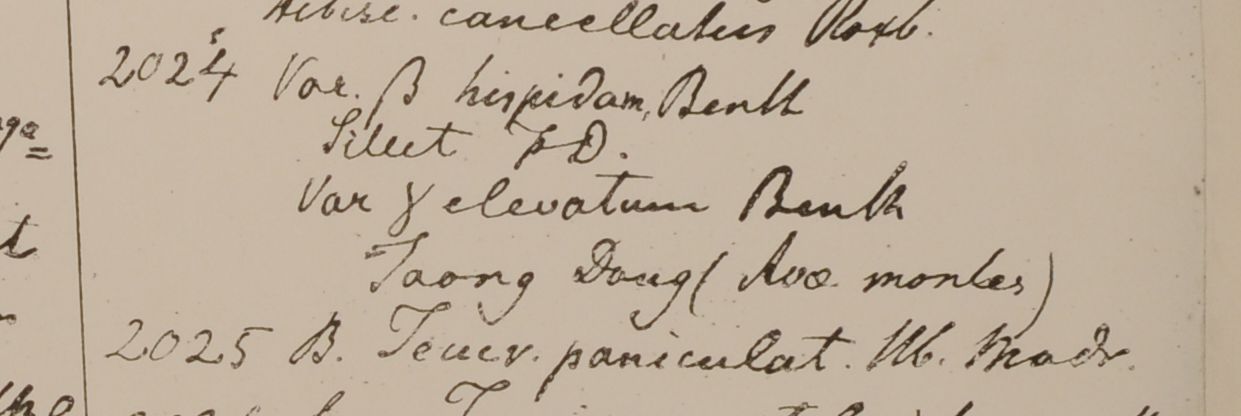 Hibisc. cancellatus Roxb.
2024 Var. β hispidam, Benth
Sillet FD.
Var γ elevatum Benth
Taong Doug (Avæ montes)
2025 B. Teucr. paniculat. Hb. Madr.